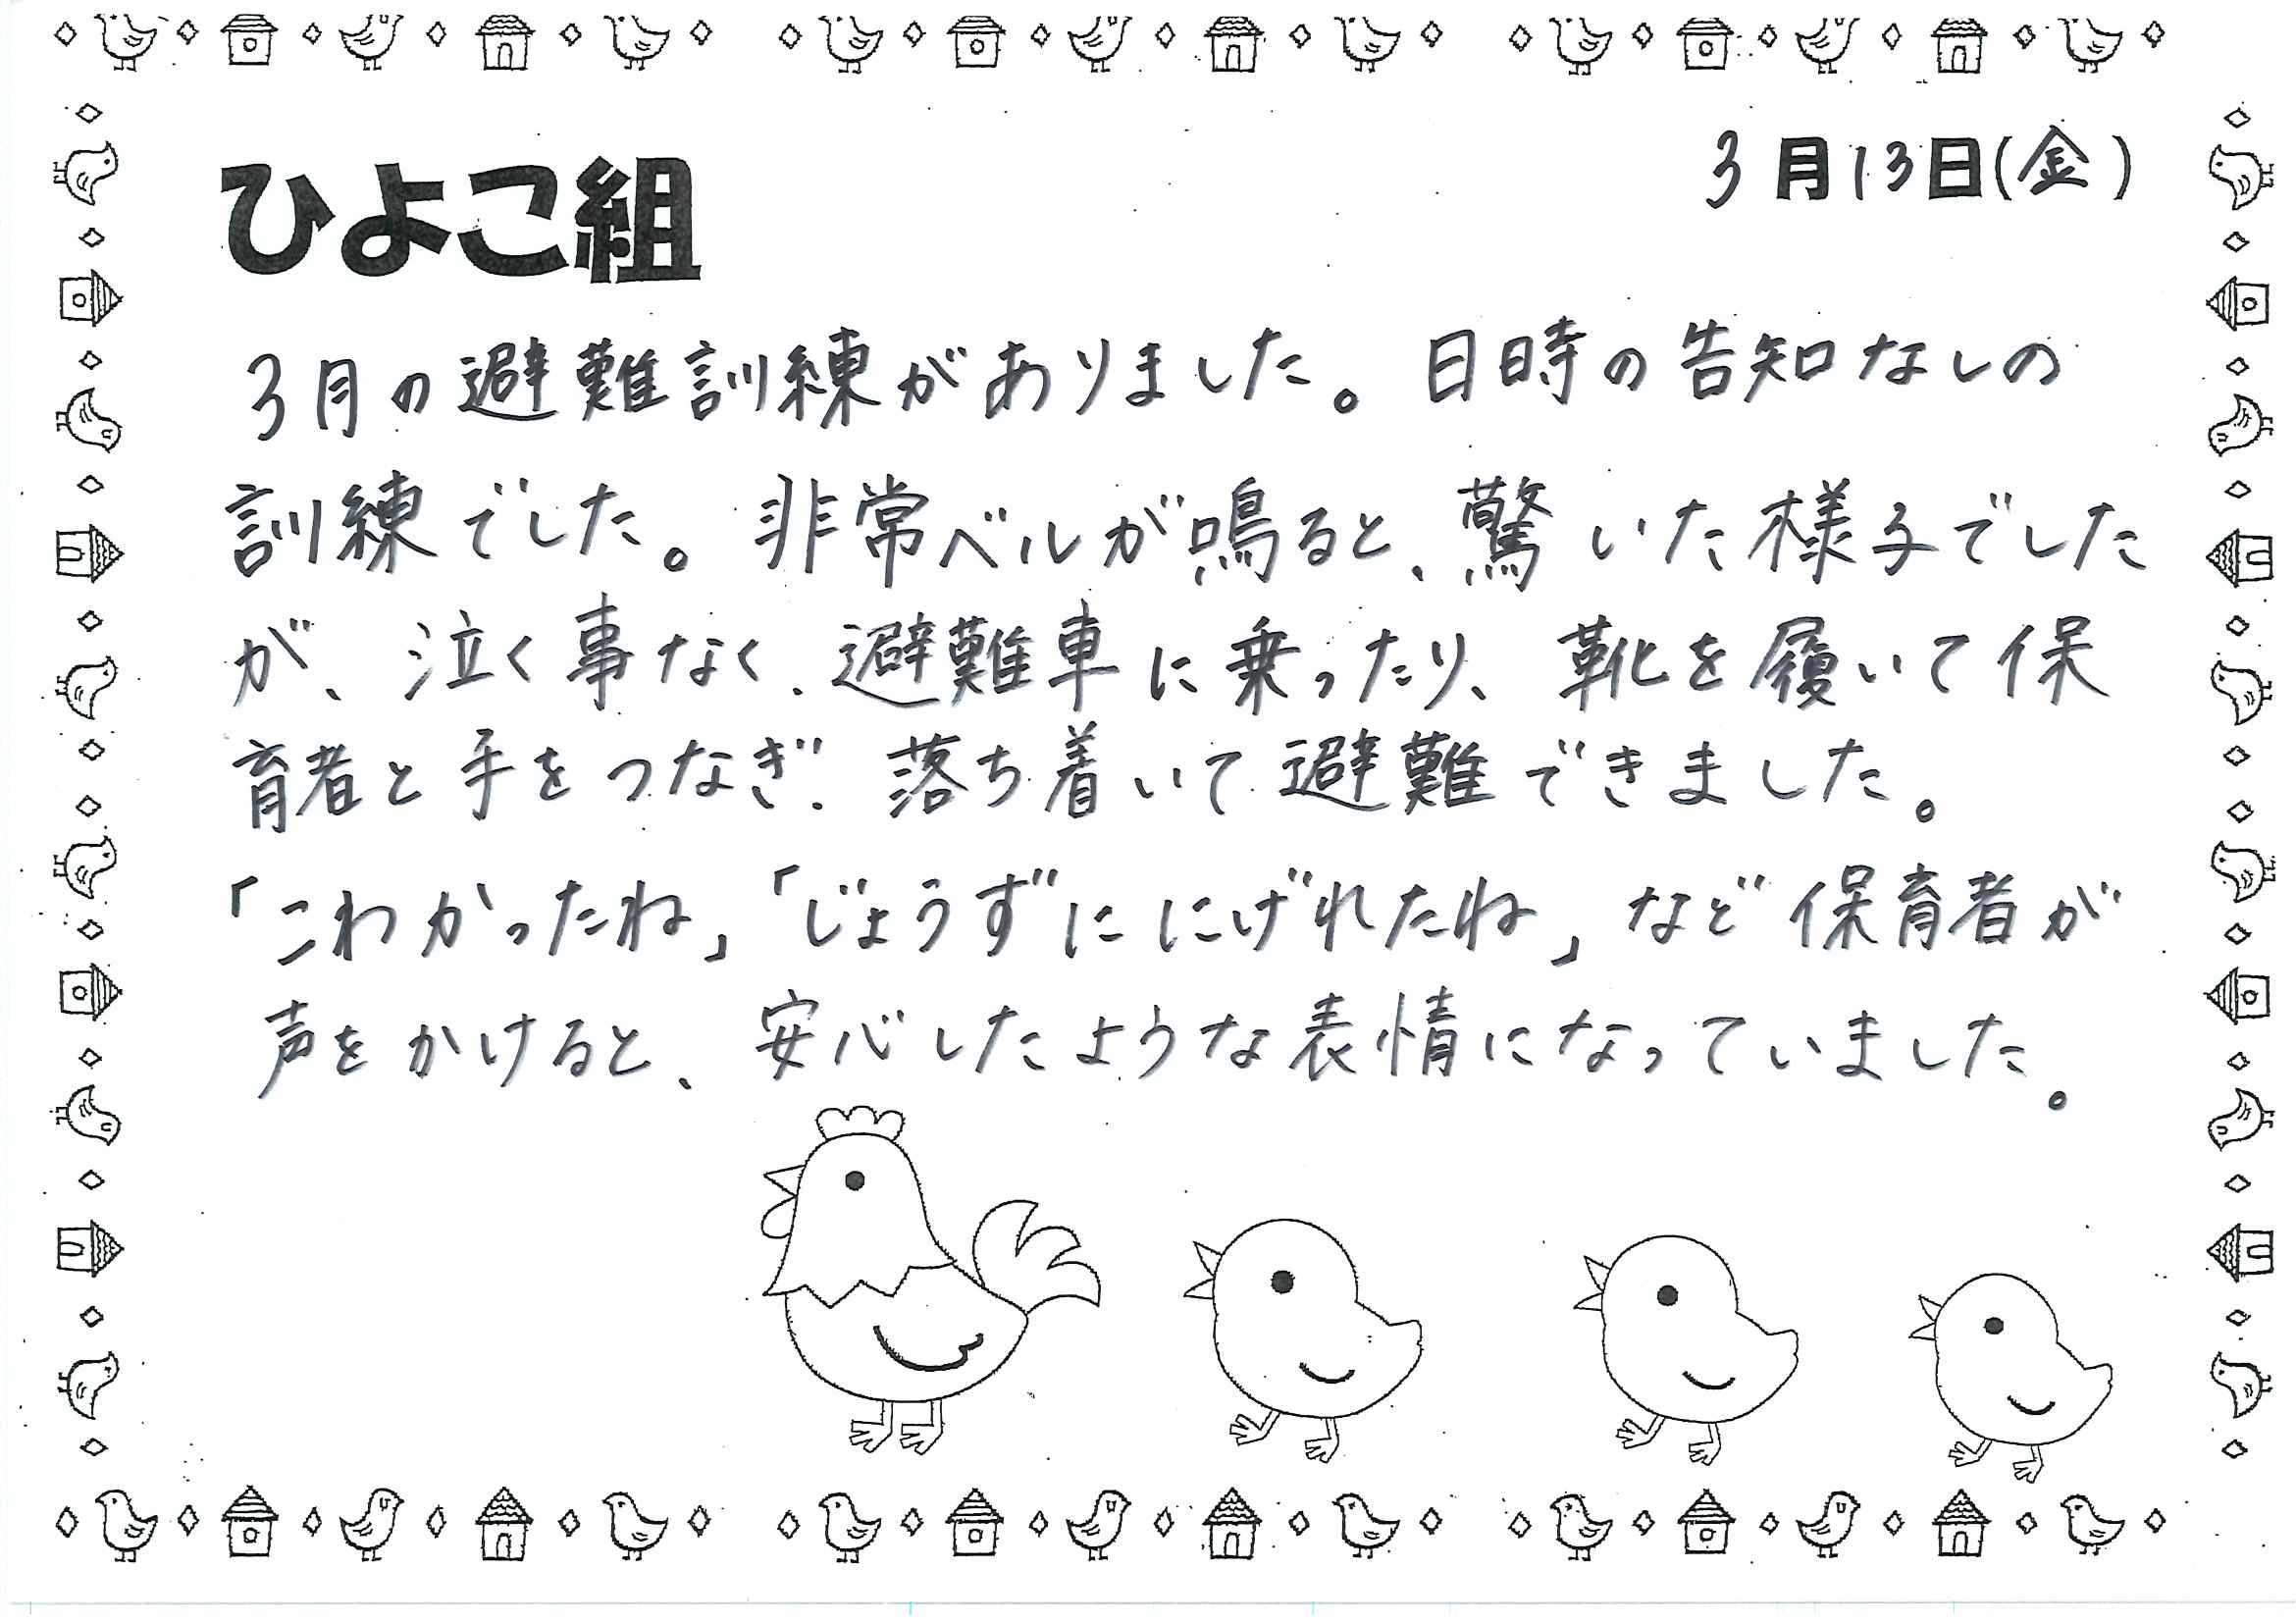 3月13日(金)
ひよこ組
3月の避難訓練がありました。日時の告知なしの
訓練でした。非常ベルが鳴ると、驚いた様子でした
が、泣く事なく、避難車に乗ったり、靴を履いて保
育者と手をつなぎ、落ち着いて避難できました。
「こわかったね」「じょうずににげれたね」など保育者が
声をかけると、安心したような表情になっていました。